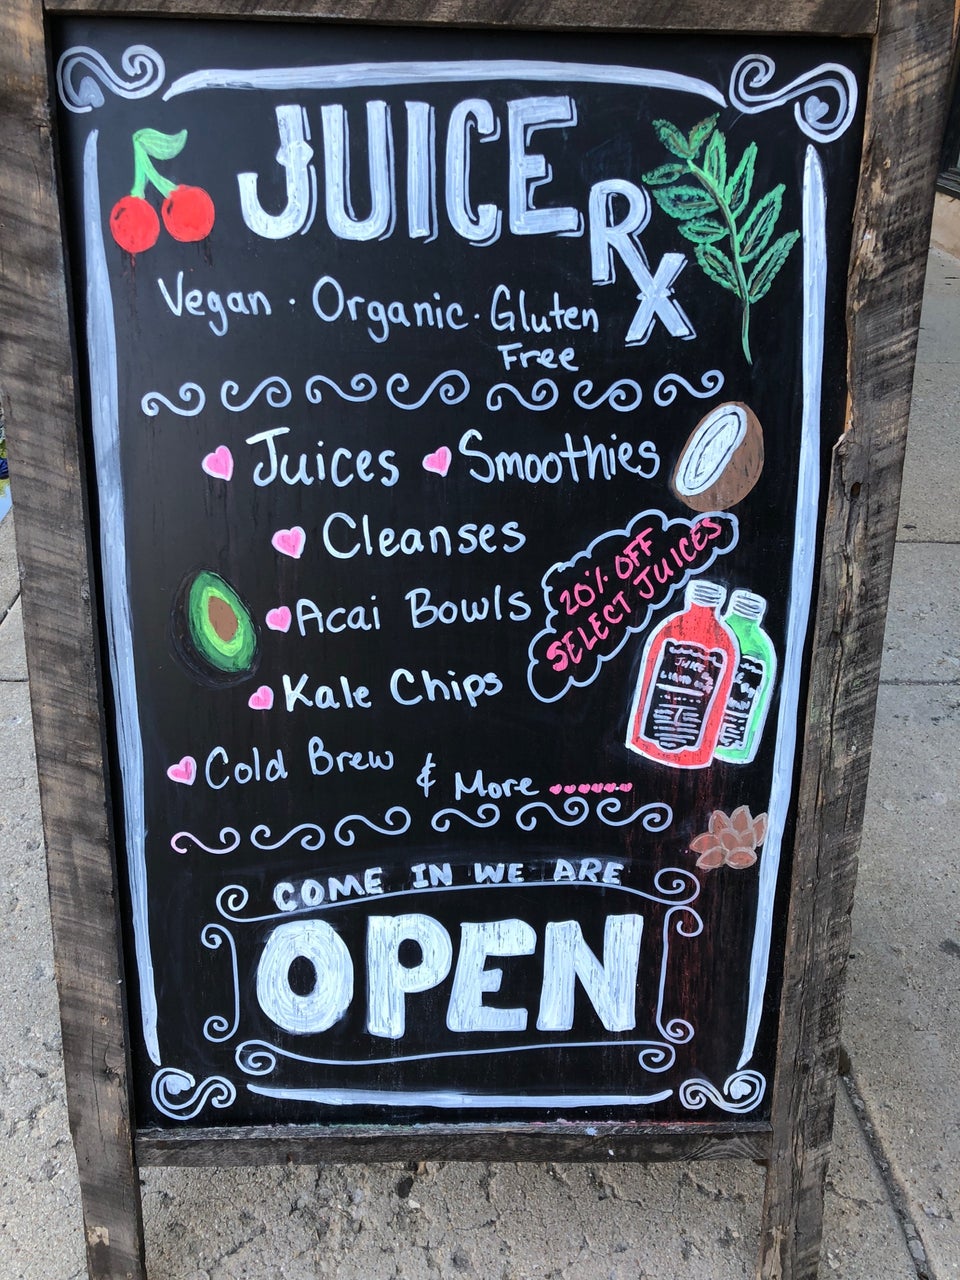 JUICE RX
Vegan · Organic · Gluten
Free
Juices Smoothies
Cleanses
20% OFF
SELECT JUICES
Acai Bowls
Kale Chips
Cold Brew & More
COME IN WE ARE
OPEN
JUICE